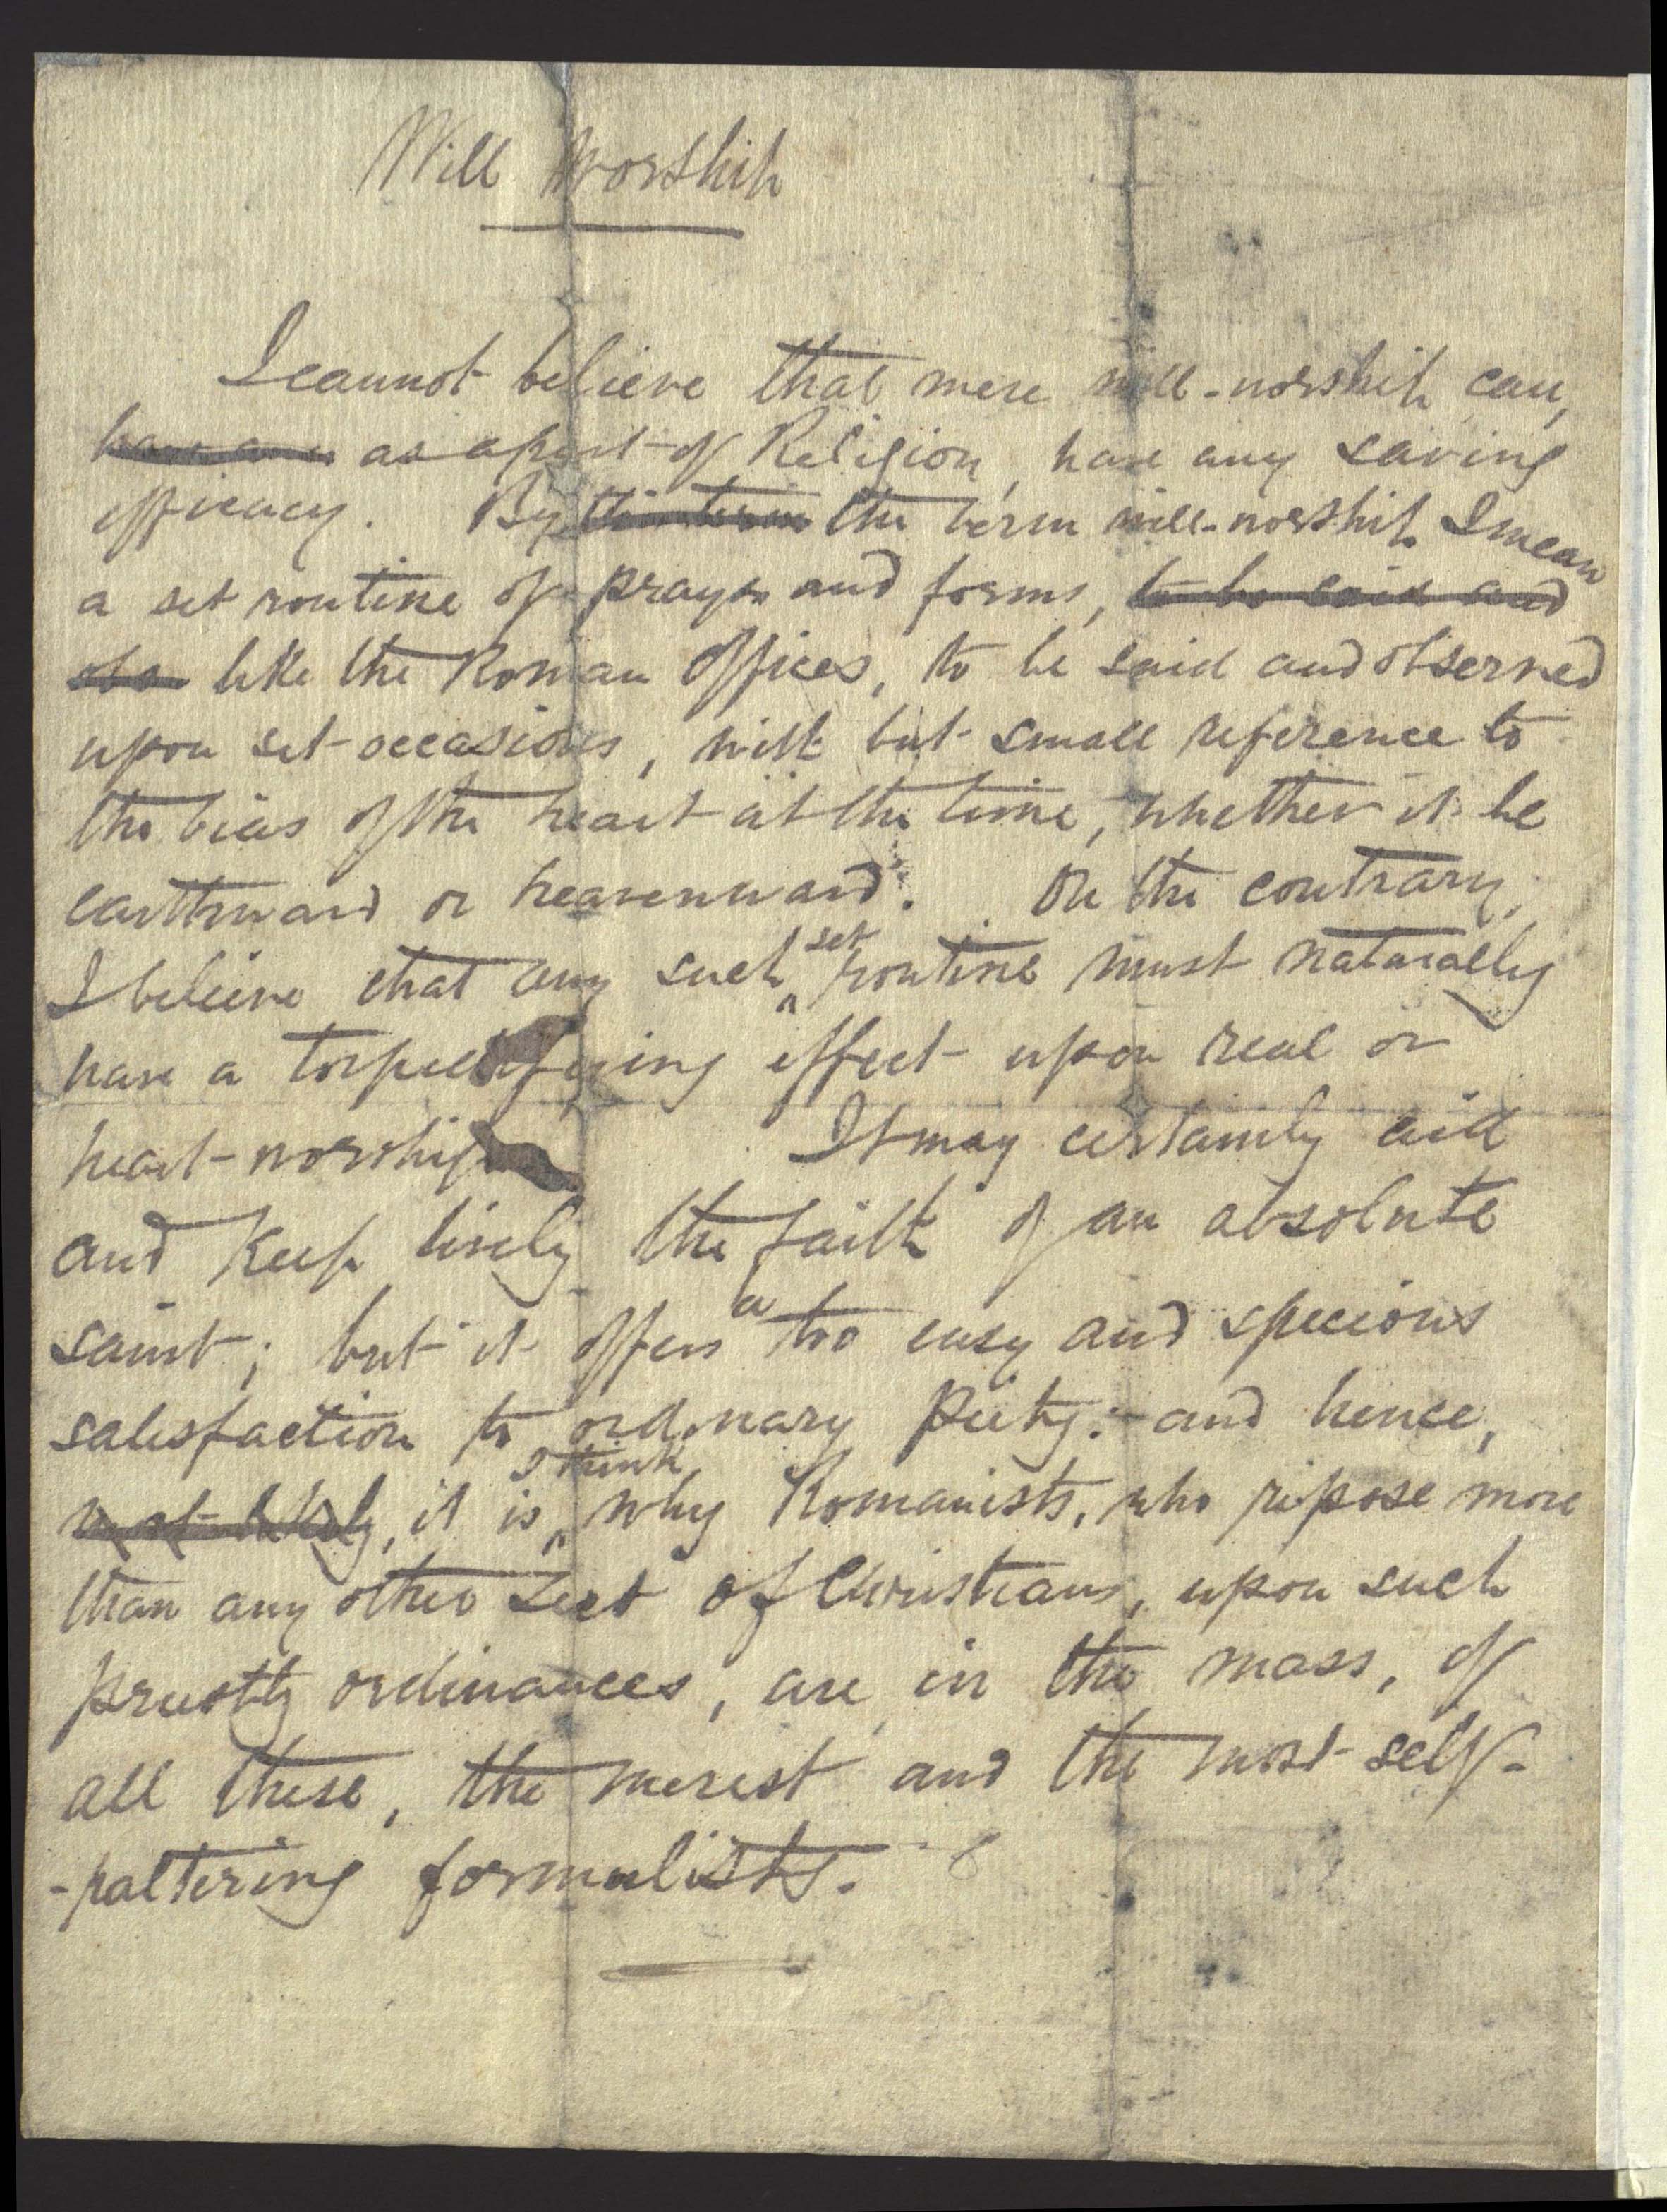 Will Worship
I cannot believe that mere will-worship can,
as a part of Religion, have any saving
efficacy. By the term will-worship I mean
a set routine of prayers and forms, to be said and
obs like the Roman Offices, to be said and observed
upon set occasions, with but small reference to
the bias of the heart at the time, whether it be
earthward or heavenward. On the contrary,
I believe that any such set routine must naturally
have a torpedifying effect upon real or
heart-worship It may certainly aid
and keep lively the faith of an absolute
saint; but it offers a too easy and specious
satisfaction to ordinary piety:- and hence,
most likely, it is I think, why Romanists, who repose more
than any other sect of Christians, upon such
priestly ordinances, are in the mass, of
all these, the merest and the most self-
-paltering formalists.